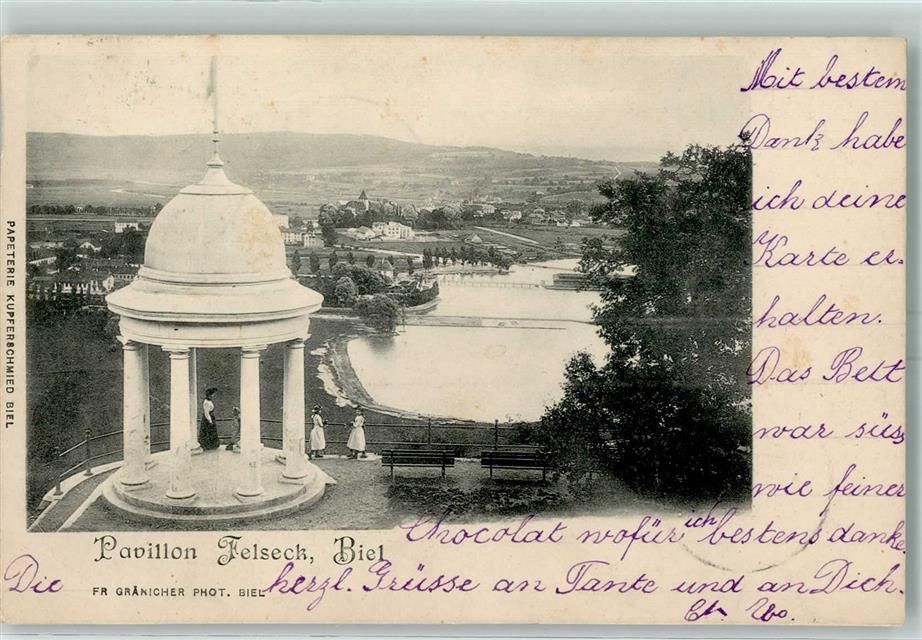 Mit bestem
Dank habe
ich deine
Karte er-
halten.
Das Bett
war süss
wie feiner
Chocolat wofür ich bestens danke.
Die herzl. Grüsse an Tante und an Dich.
Pavillon Felseck, Biel
FR GRÄNICHER PHOT. BIEL
PAPETERIE KUPFERSCHMIED BIEL